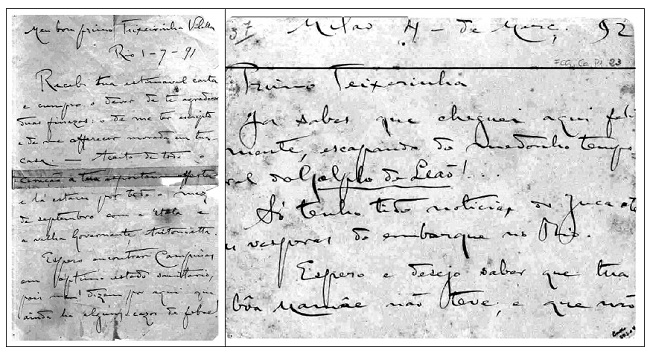 Meu bom primo Teixeirinha
Rio 1-7-91
Recebi tua estimavel carta
e cumpro o dever de te agradecer
duas finezas: o de me ter escripto
e de me offerecer morada em tua
casa — Aceito de todo
coração a tua
e lá estarei por todo o mez
de septembro com a e
a velha governante,
Espero encontrar Campinas
em optimo estado sanitario,
pois me dizem por aqui que
ainda ha alguns casos de febre!
Milão 4 - de Març. 92
FCG. Co. P1. 23
Primo Teixeirinha
Ja sabes que cheguei aqui feliz
mente, escapando do medonho tempo
ral do Golpho de Leão!...
Só tenho tido noticias do Juca até
vesporas do embarque no Rio.
Espero e desejo saber que tua
bôa Mamãe não teve, e que não